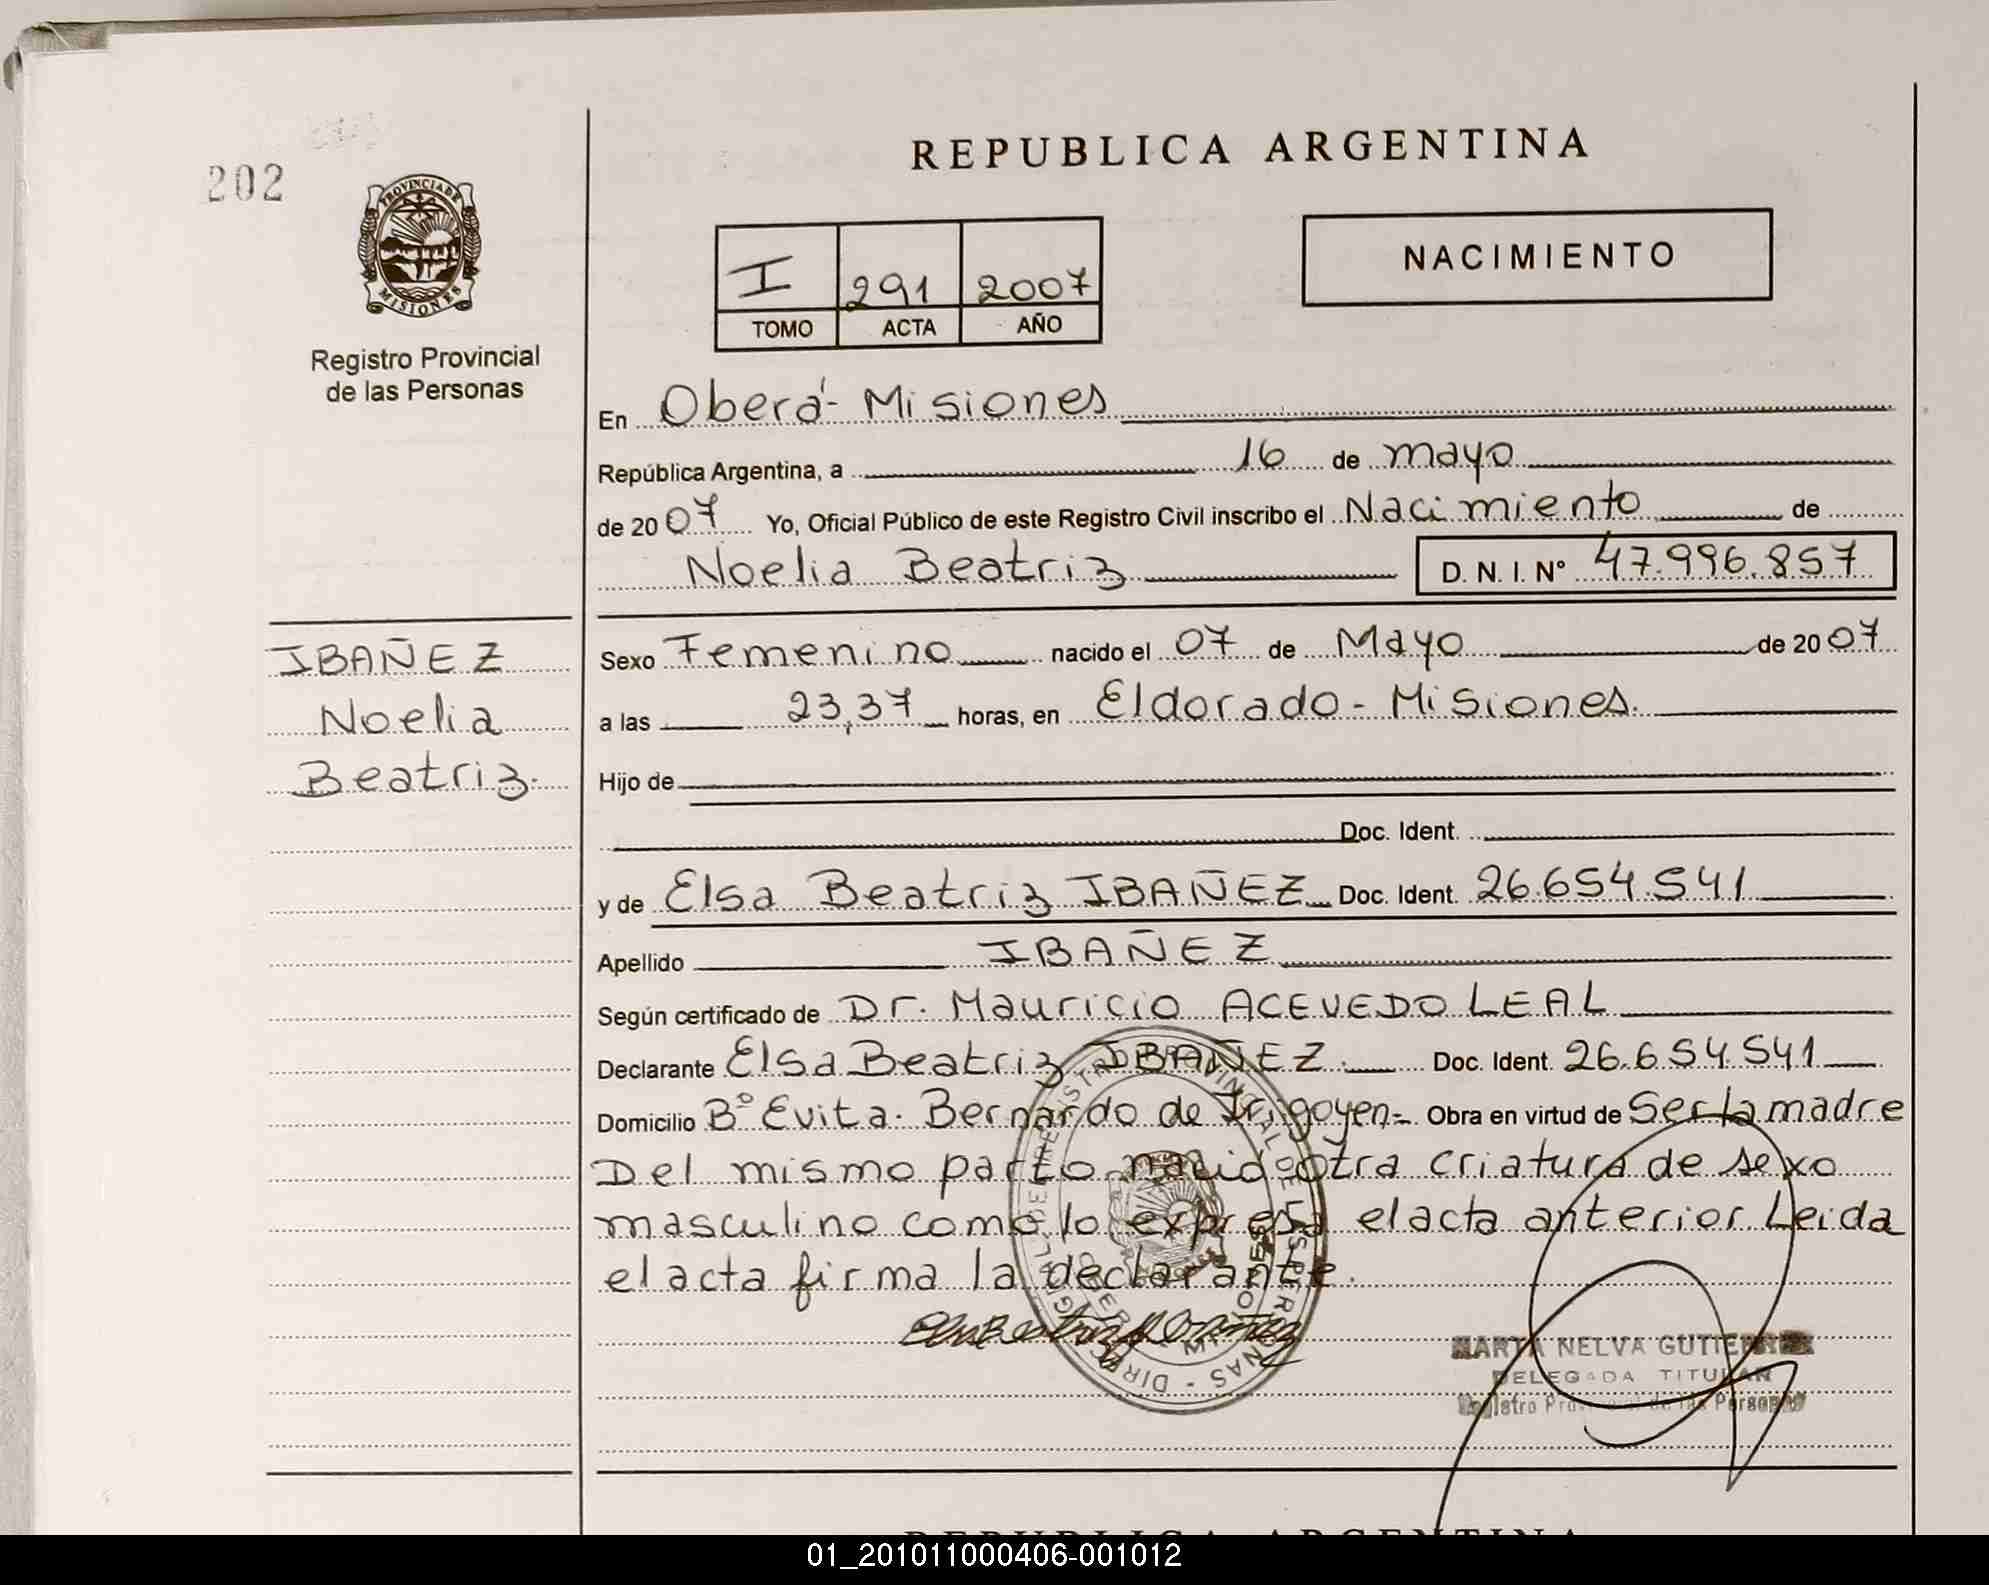 202
PROVINCIA DE
MISIONES
Registro Provincial
de las Personas
REPUBLICA ARGENTINA
I 291 2007
TOMO ACTA AÑO
NACIMIENTO
En Oberá - Misiones
República Argentina, a 16 de mayo
de 2007 Yo, Oficial Público de este Registro Civil inscribo el Nacimiento de
Noelia Beatriz D. N. I. N° 47.996.857
IBAÑEZ
Noelia
Beatriz.
Sexo Femenino nacido el 07 de Mayo de 2007
a las 23,37 horas, en Eldorado - Misiones.
Hijo de
Doc. Ident.
y de Elsa Beatriz IBAÑEZ Doc. Ident. 26.654.541
Apellido IBAÑEZ
Según certificado de Dr. Mauricio ACEVEDO LEAL
Declarante Elsa Beatriz IBAÑEZ. Doc. Ident. 26.654.541
Domicilio B° Evita. Bernardo de Irigoyen- Obra en virtud de Ser la madre
Del mismo parto nacio otra criatura de sexo
masculino como lo expresa el acta anterior Leida
el acta firma la declarante.
MARTA NELVA GUTIERREZ
DELEGADA TITULAR
Registro Provincial de las Personas
REPUBLICA ARGENTINA
01_201011000406-001012